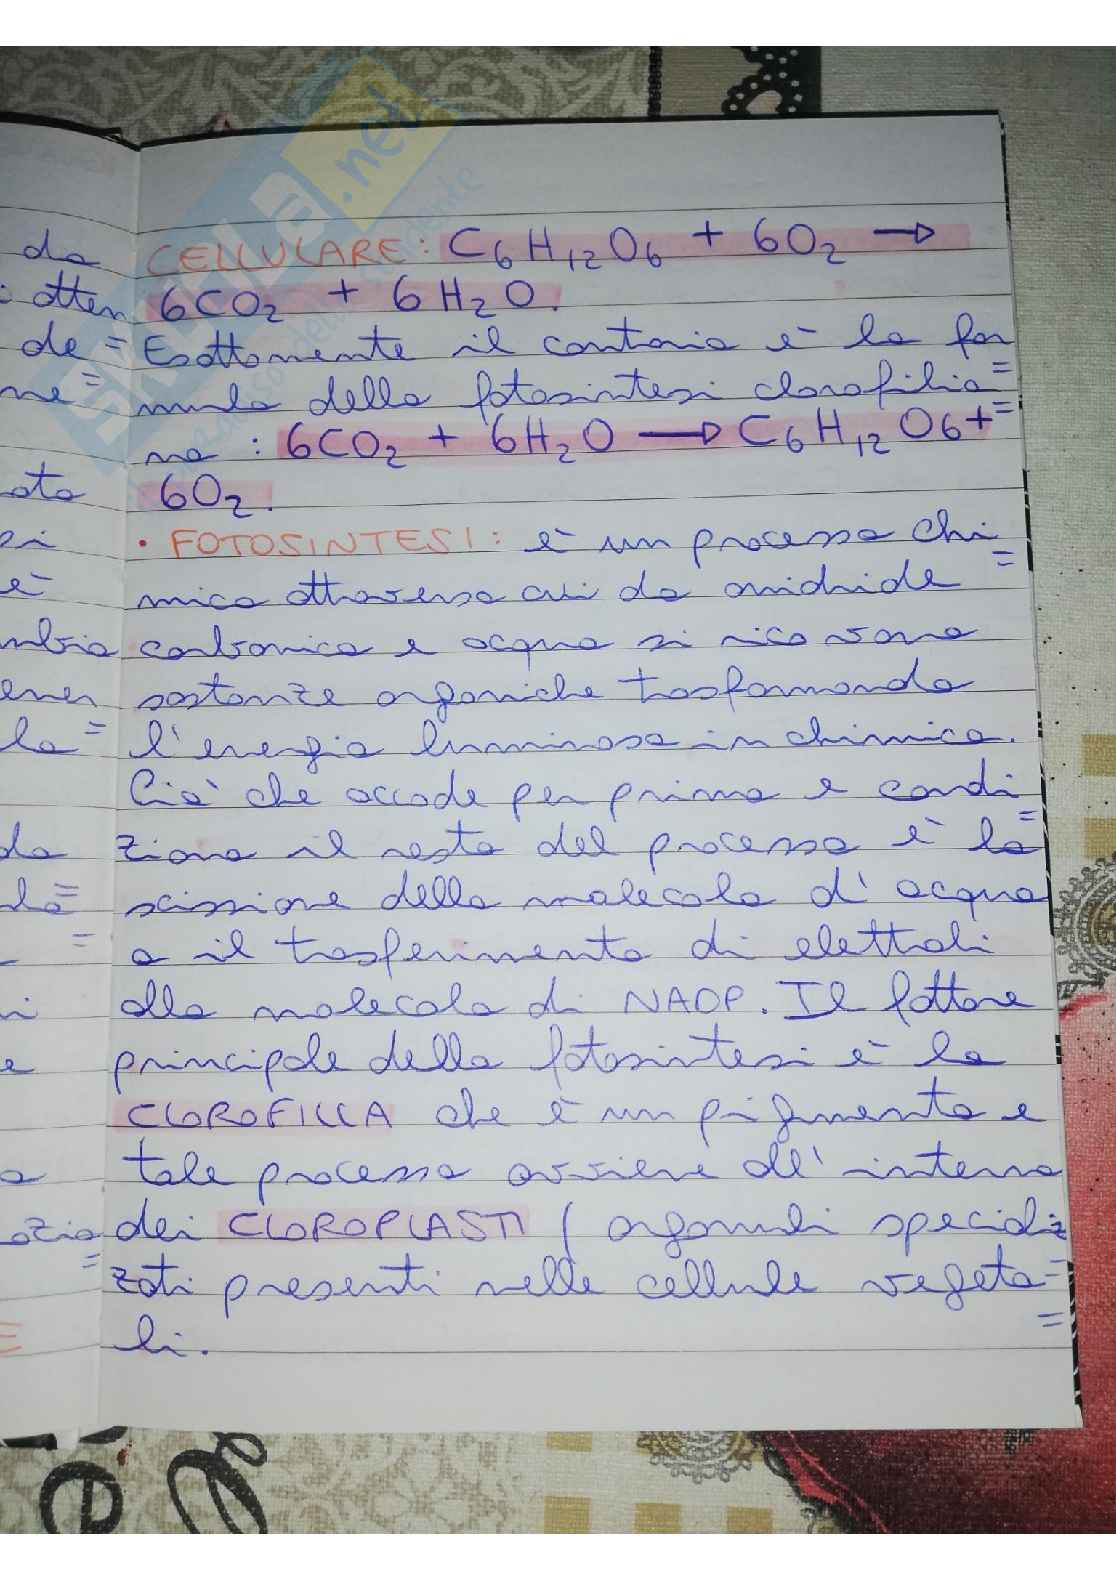 CELLULARE: C6H12O6 + 6O2 →
6CO2 + 6H2O.
Esattamente il contrario è la for=
mula della fotosintesi clorofillia=
na: 6CO2 + 6H2O → C6H12O6 +
6O2.
• FOTOSINTESI: è un processo chi=
mico attraverso cui da anidride
carbonica e acqua si ricavano
sostanze organiche trasformando
l'energia luminosa in chimica.
Ciò che accade per primo e condi=
ziona il resto del processo è la
scissione della molecola d'acqua
o il trasferimento di elettroli
alla molecola di NADP. Il fattore
principale della fotosintesi è la
CLOROFILLA che è un pigmento e
tale processo avviene all'interno
dei CLOROPLASTI (organuli specializ
zati presenti nelle cellule vegeta=
li.
da
otten
de=
me=
ato
si
è
mbia
ener
la=
da
la=
=
i
e
a
azio
=
E
.net